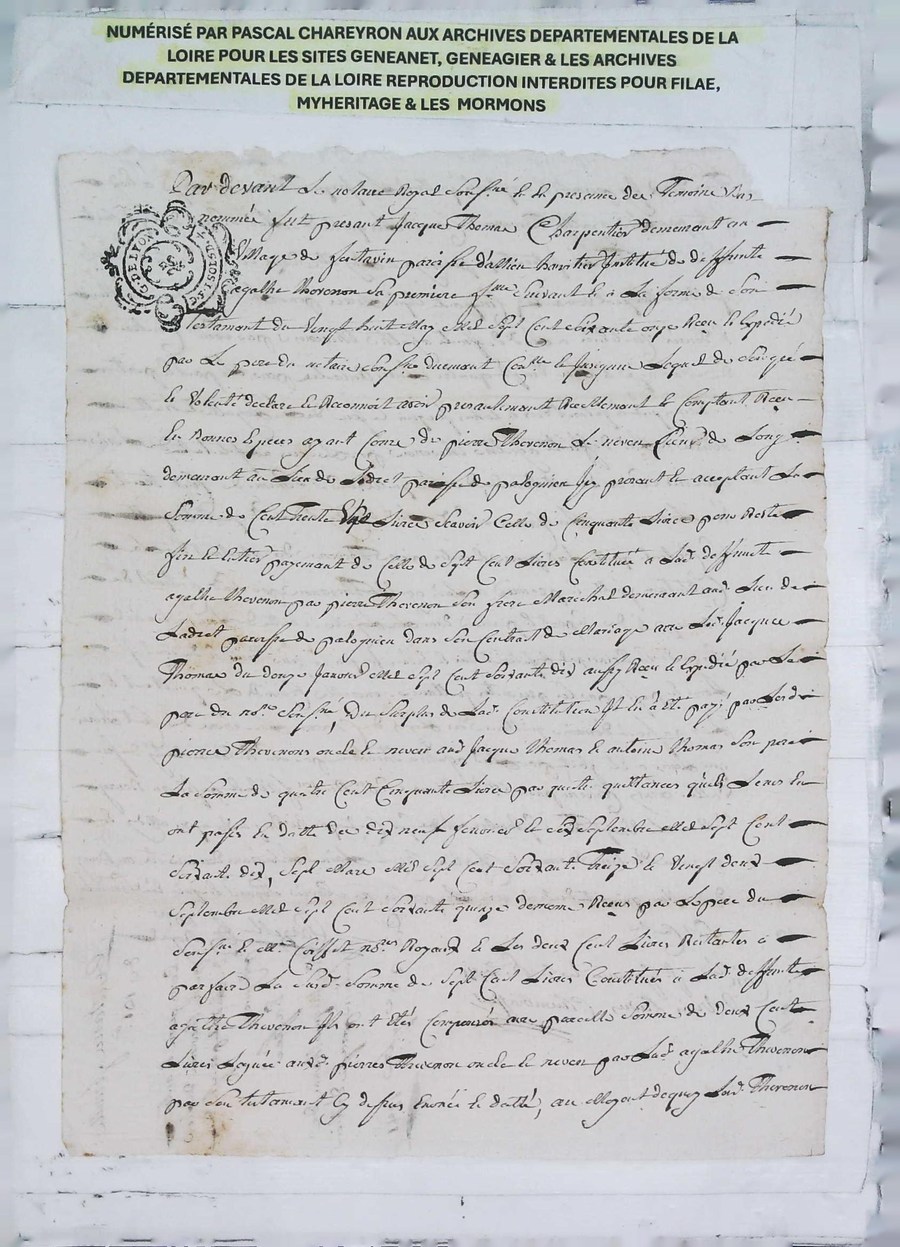 NUMÉRISÉ PAR PASCAL CHAREYRON AUX ARCHIVES DEPARTEMENTALES DE LA
LOIRE POUR LES SITES GENEANET, GENEAGIER & LES ARCHIVES
DEPARTEMENTALES DE LA LOIRE REPRODUCTION INTERDITES POUR FILAE,
MYHERITAGE & LES MORMONS
Par devant Le notaire Royal Sousné Et En presence des Temoins Bas
nommés fut presant Jacque Thomas Charpentier demeurant au
Village de parroisse
G. DE LYON
agathe Thevenon sa premiere fme Suivant Et à La forme de Son
Testamant du Vingt huit May Mil Sept Cent Soixante onze Reçu Et Expedié
par Le pere du notaire Sousné Lequel de Son gré
Et Volonté declare Et Reconnoit avoir presantement Reellement Et Comptant Reçu
En Bonnes Especes ayant Cours de pierre Thevenon Le neveu
demeurant au Lieu de parroisse de palognieu Icy presant Et acceptant La
Somme de Cent trente Livres Scavoir Celle de Cinquante Livres pour Reste
fin Et Entier payemant de Celle de Sept Cent Livres Constituée a Lad. deffunte
agathe thevenon par pierre Thevenon Son frere Marechal demeurant aud. Lieu de
parroisse de palognieu dans Son Contrat de Mariage avec Led. Jacque
Thomas du douze Janvier Mil Sept Cent Soixante dix aussy Reçu Et Expedié par Le
pere du nore Sousné, du Surplus de Lad. Constitution Il En à Eté payé par Lesd.
pierres Thevenons oncle Et neveu aud. Jacque Thomas Et antoine Thomas Son pere
La Somme de quatre Cent Cinquante Livres par quittances quils Leurs En
ont passés En datte des dix neuf fevrier Et Septembre Mil Sept Cent
Soixante dix, Sept Mars Mil Sept Cent Soixante Treize Et Vingt deux
Septembre Mil Sept Cent Soixante quinze de meme Reçus par Le pere du
Sousné Et Me nores Royaux Et Les deux Cent Livres Restantes à
parfaire La Susd. Somme de Sept Cent Livres Constituée à Lad. deffunte
agathe Thevenon Ils ont Etés Compensés avec pareille Somme de deux Cent
Livres Leguée auxd. pierres Thevenon oncle Et neveu par Lad. agathe Thevenon
par Son testament Cy dessus Enoncé Et datté, au Moyent dequoy Lesd. Thevenon